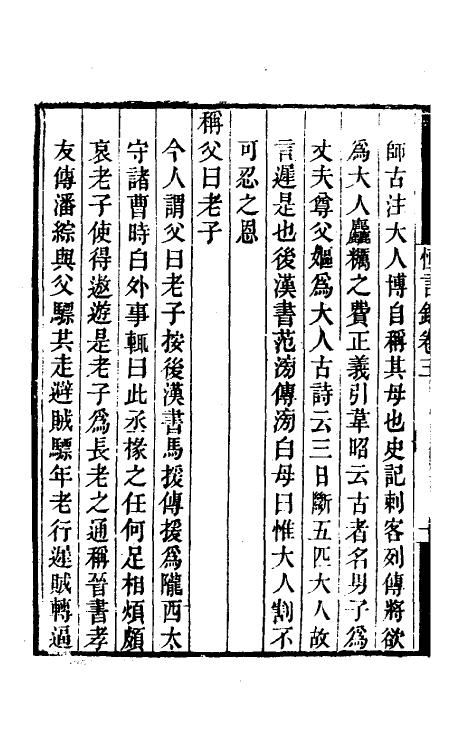 師古注大人博自稱其母也史記刺客列傳將欲
爲大人麤糲之費正義引韋昭云古者名男子爲
丈夫尊父嫗爲大人古詩云三日斷五匹大人故
言遲是也後漢書范滂傳滂白母曰惟大人割不
可忍之恩
稱父曰老子
今人謂父曰老子按後漢書馬援傳援爲隴西太
守諸曹時白外事輒曰此丞掾之任何足相煩頗
哀老子使得遨遊是老子爲長老之通稱晉書孝
友傳潘綜與父驃共走避賊驃年老行遲賊轉逼